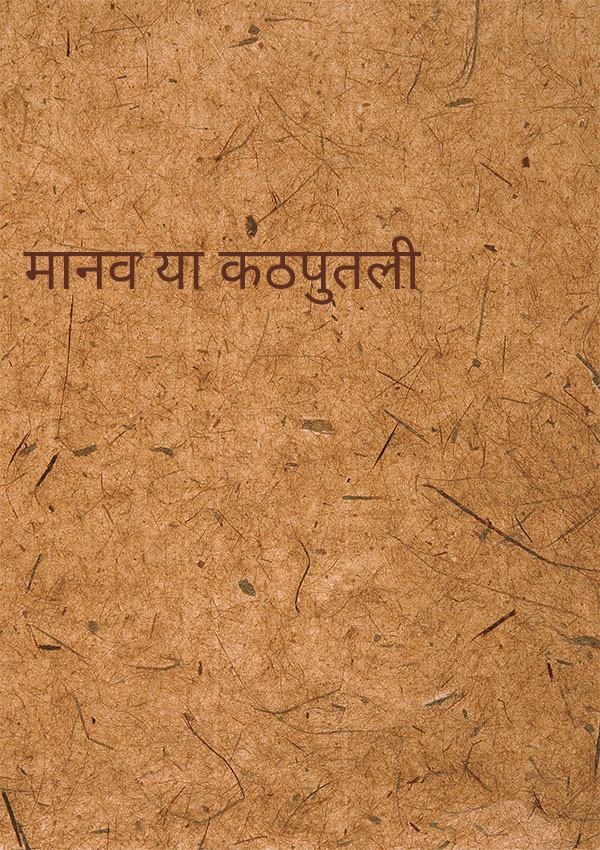 मानव या कठपुतली